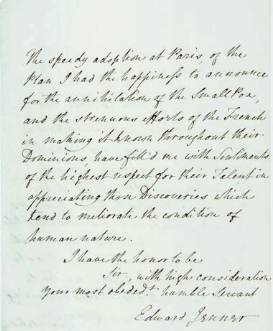 The speedy adoption at Paris, of the
Plan I had the happiness to announce
for the annihilation of the Small Pox,
and the strenuous efforts of the French
in making it known throughout their
Dominions have fill'd me with Sentiments
of the highest respect for their Talent in
appreciating those Discoveries which
tend to meliorate the condition of
human nature.
I have the honor to be
Sir, with high consideration
Your most obedt. humble Servant
Edward Jenner